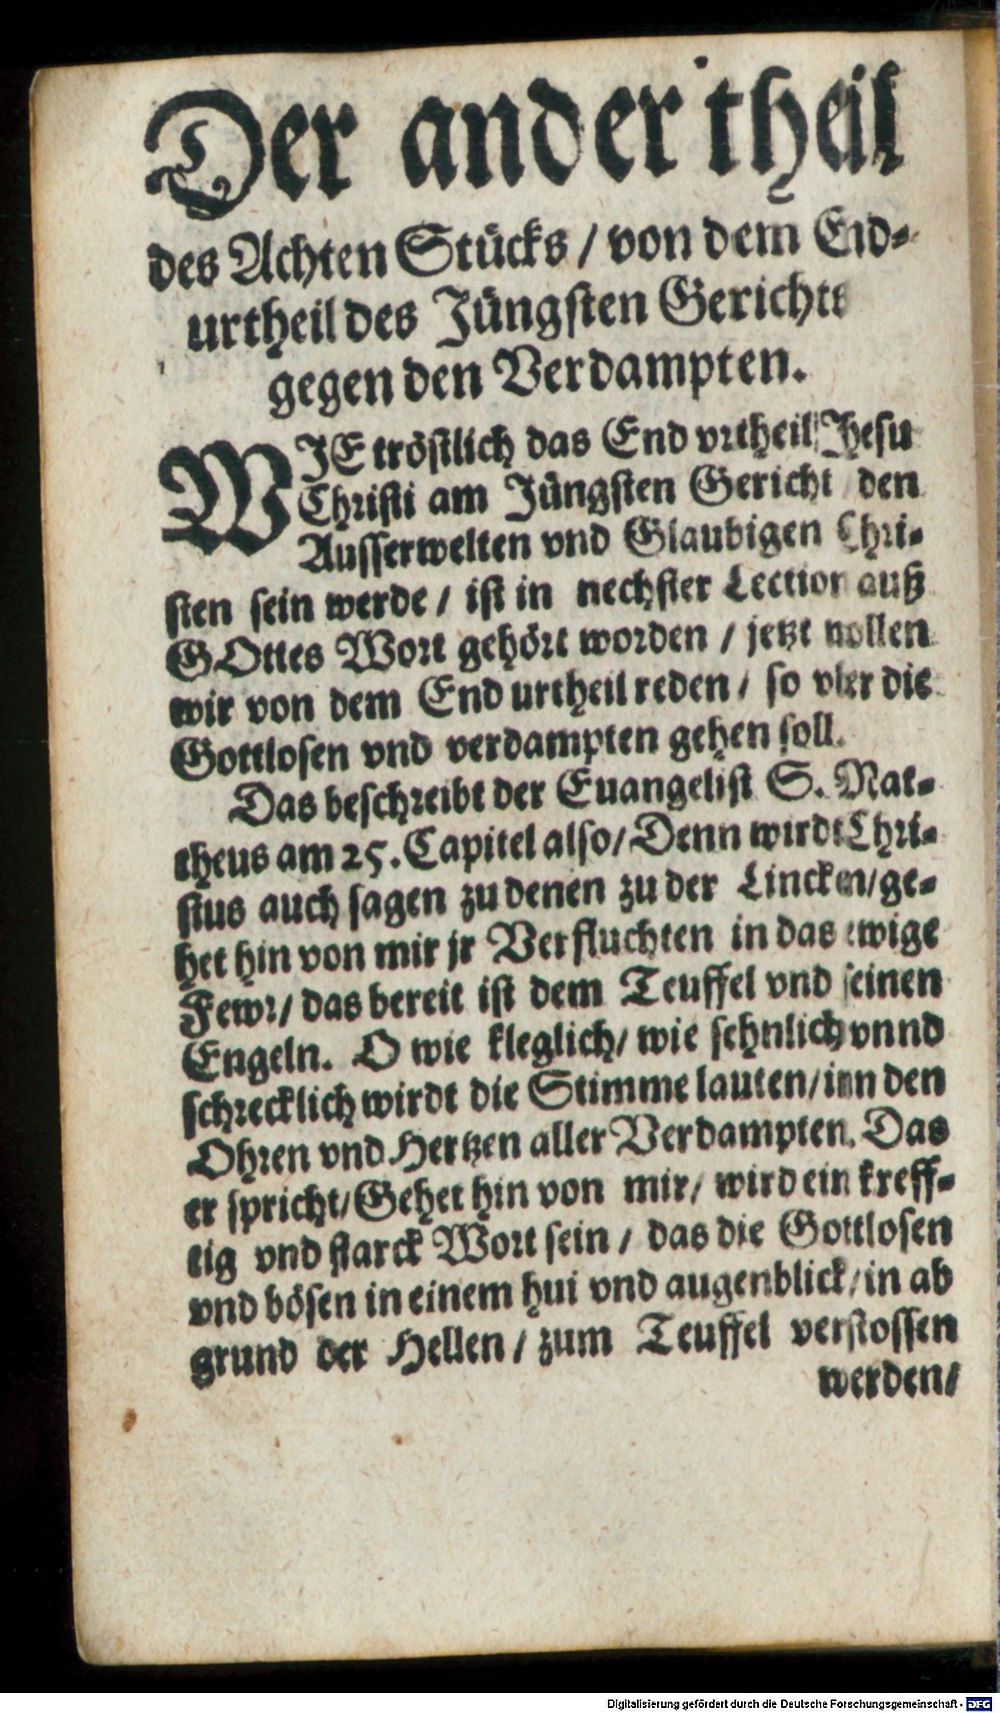 Der ander theil
des Achten Stücks / von dem End-
urtheil des Jüngsten Gerichts
gegen den Verdampten.
WIE tröstlich das End vrtheil Jhesu
Christi am Jüngsten Gericht den
Ausserwelten vnd Glaubigen Chri-
sten sein werde / ist in nechster Lection auß
GOttes Wort gehört worden / jetzt wollen
wir von dem End urtheil reden / so vber die
Gottlosen vnd verdampten gehen soll.
Das beschreibt der Euangelist S. Mat-
theus am 25. Capitel also / Denn wirdt Chri-
stus auch sagen zu denen zu der Lincken / ge-
het hin von mir jr Verfluchten in das ewige
Fewr / das bereit ist dem Teuffel vnd seinen
Engeln. O wie kleglich / wie sehnlich vnnd
schrecklich wirdt die Stimme lauten / inn den
Ohren vnd Hertzen aller Verdampten. Das
er spricht / Gehet hin von mir / wird ein kreff-
tig vnd starck Wort sein / das die Gottlosen
vnd bösen in einem hui vnd augenblick / in ab
grund der Hellen / zum Teuffel verstossen
werden /
Digitalisierung gefördert durch die Deutsche Forschungsgemeinschaft - DFG